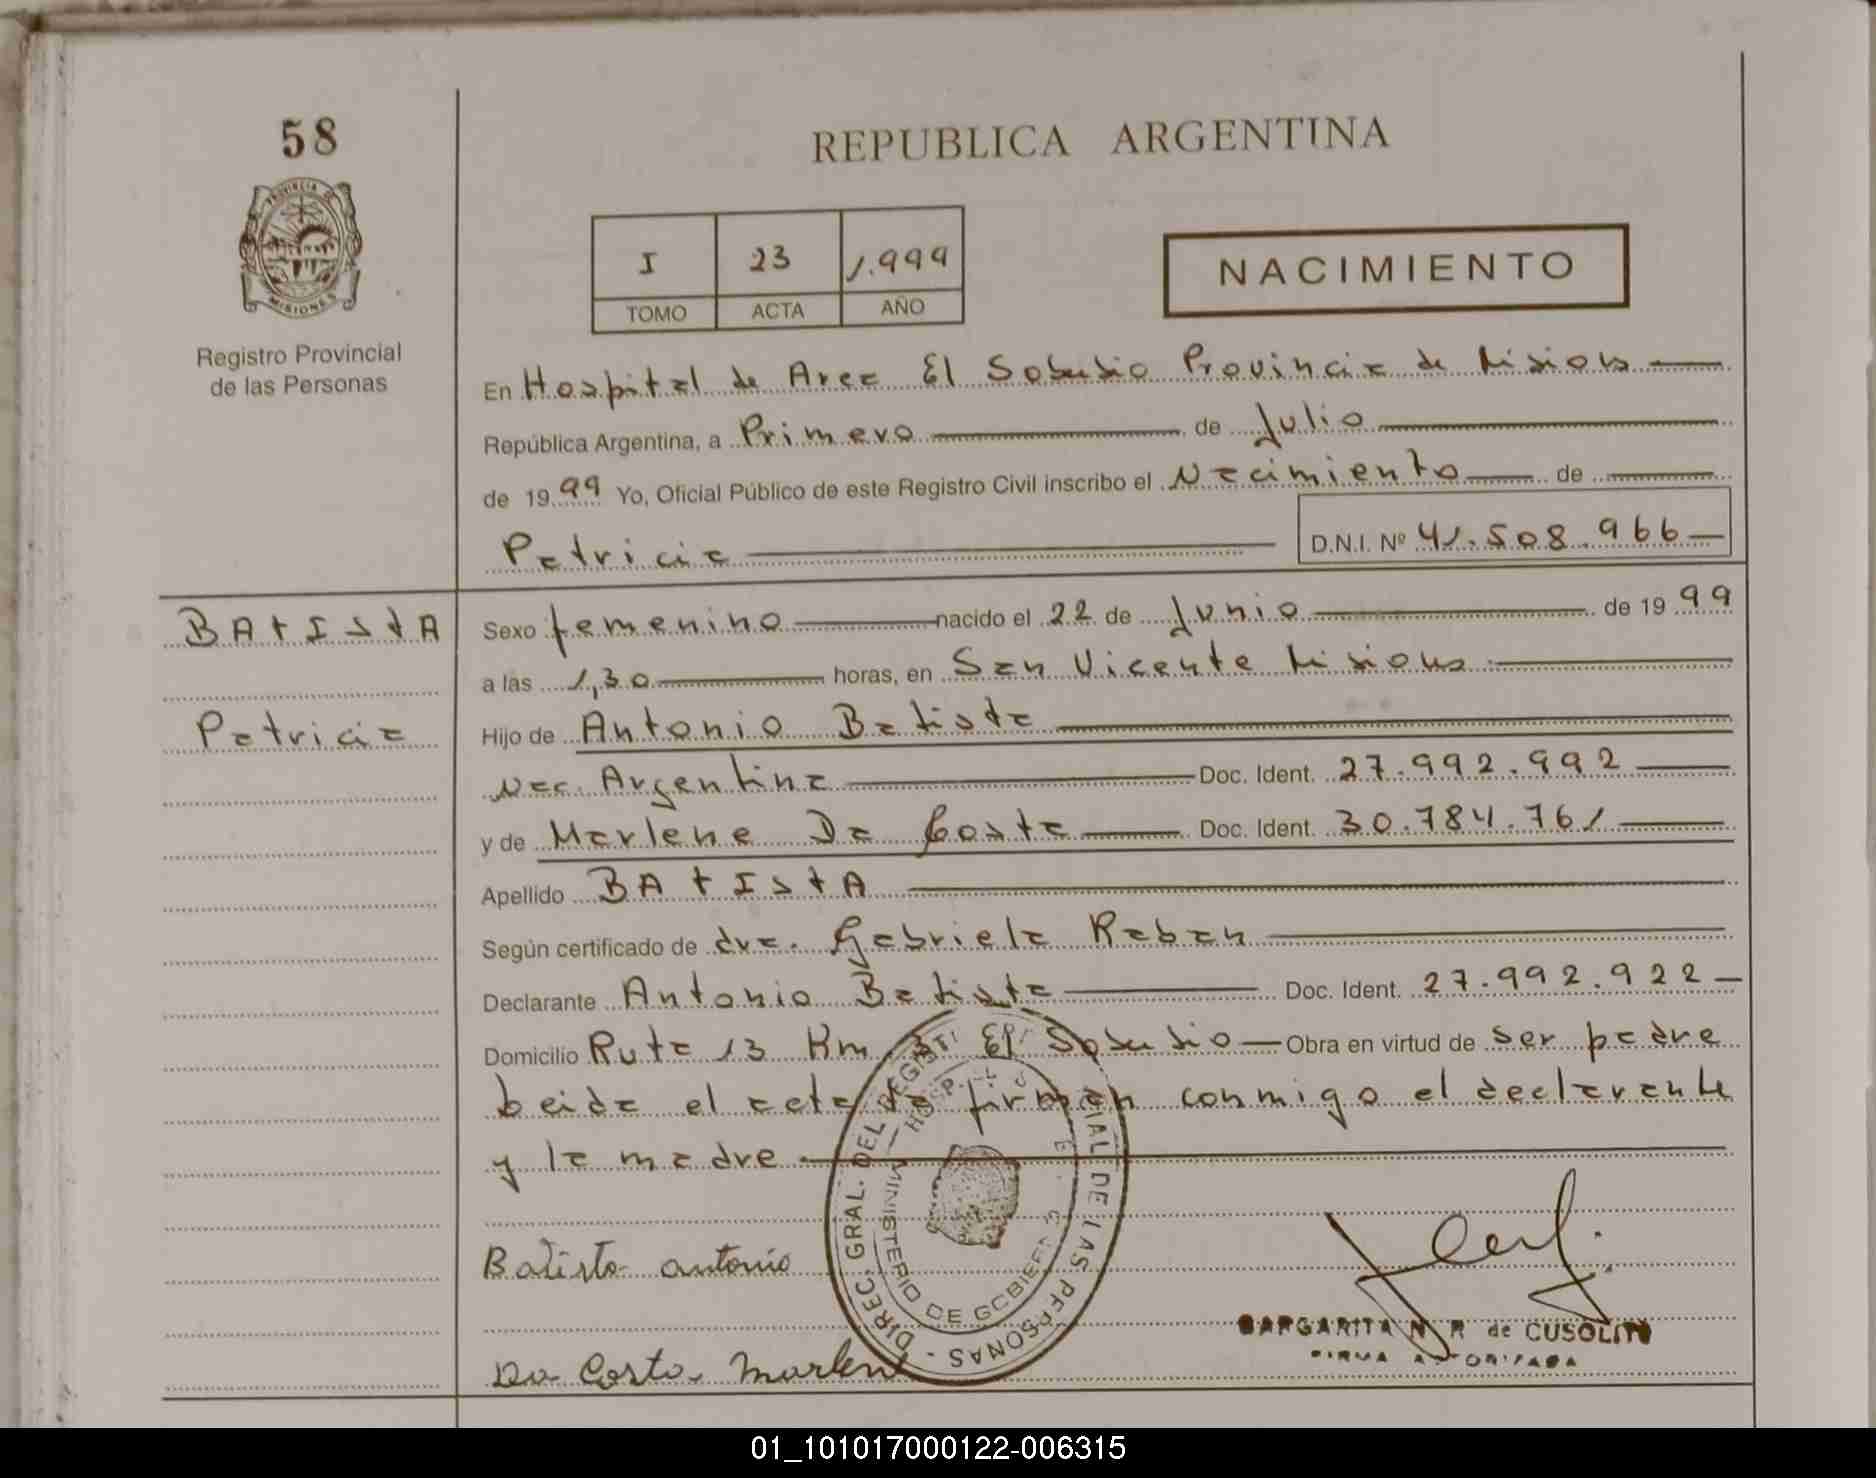 58
PROVINCIA DE
MISIONES
Registro Provincial
de las Personas
REPUBLICA ARGENTINA
I 23 1.999
TOMO ACTA AÑO
NACIMIENTO
En Hospital de Area El Soberbio Provincia de Misiones
República Argentina, a Primero de Julio
de 1999 Yo, Oficial Público de este Registro Civil inscribo el Nacimiento de
Patricia D.N.I. Nº 41.508.966
BAtIstA
Patricia
Sexo femenino nacido el 22 de Junio de 1999
a las 1,30 horas, en San Vicente Misiones
Hijo de Antonio Batista
Nac. Argentina Doc. Ident. 27.992.992
y de Marlene Da Costa Doc. Ident. 30.784.761
Apellido BAtIstA
Según certificado de dra. Gabriela Raban
Declarante Antonio Batista Doc. Ident. 27.992.922
Domicilio Ruta 13 Km 3 El Soberbio Obra en virtud de ser padre
Leida el acta la firman conmigo el declarante
y la madre
Batista antonio
Da Costa Marlene
DIREC. GRAL. DEL REGIST PERSONAS
MINISTERIO DE GOBIERNO
MARGARITA N R de CUSOLITO
FIRMA AUTORIZADA
01_101017000122-006315